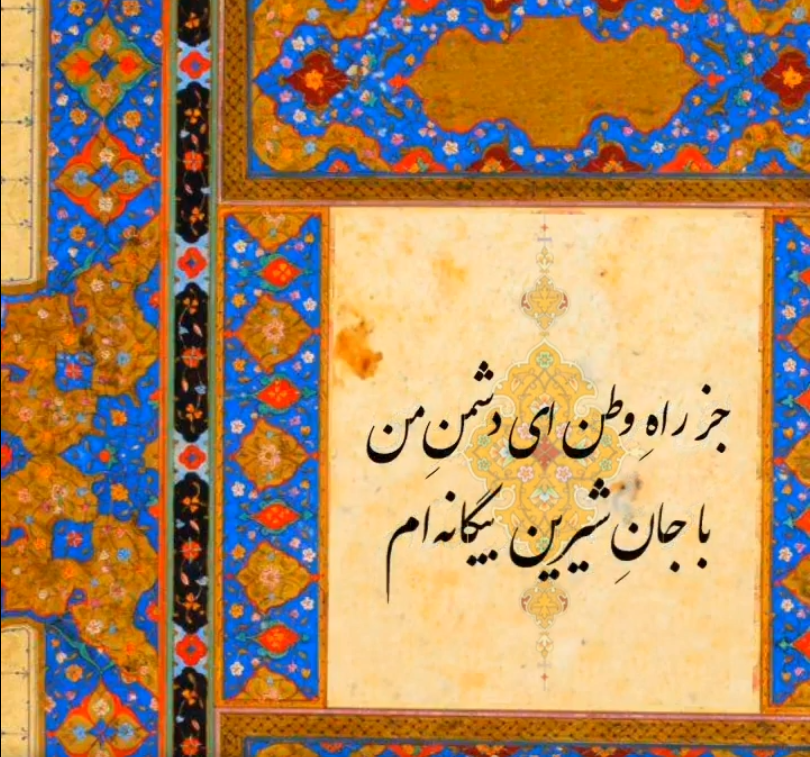 جز راهِ وطن ای دشمنِ من
با جانِ شیرین بیگانه‌ام